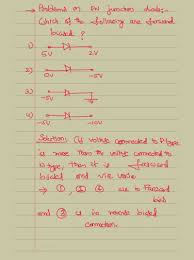 → Problems on PN junction diode:-
Which of the following are forward
biased ?
1)
-5V 2V
2)
0V -5V
3)
-5V
4)
-10V -15V
Solution: If voltage connected to P type
is more than the voltage connected to
N type, then it is forward
biased and vice versa
→ ①, ②, ④ are in forward
bias
and ③ is in reverse biased
connection.